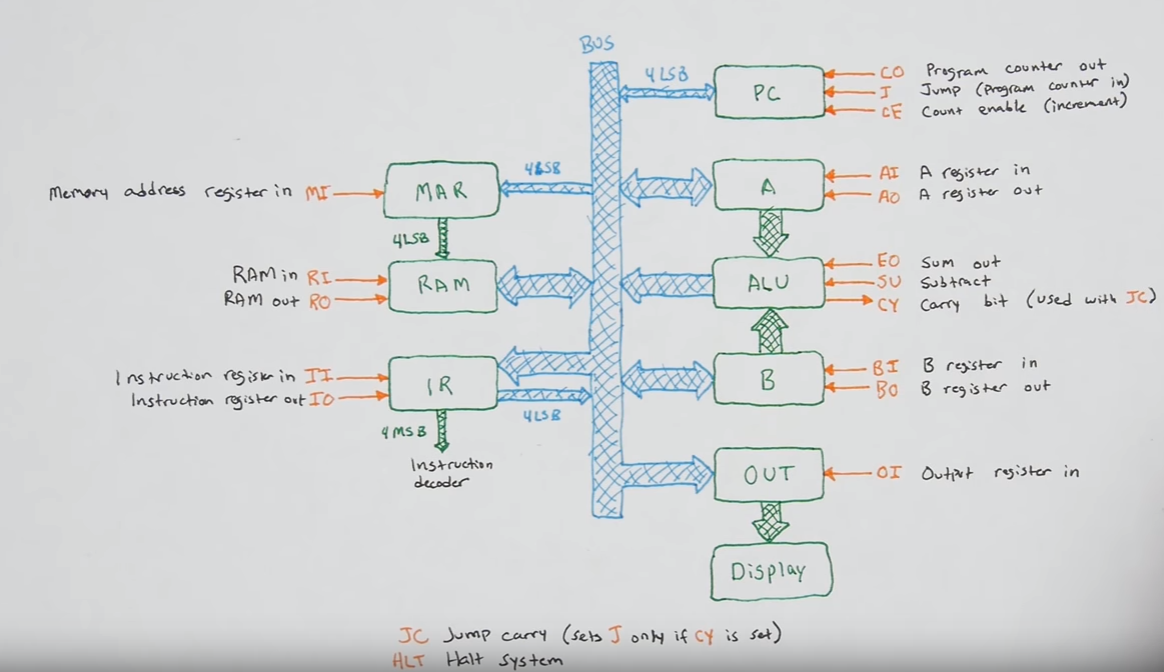 BUS
4LSB
PC
CO Program counter out
J Jump (Program counter in)
CE Count enable (increment)
Memory address register in MI
MAR
4LSB
A
AI A register in
AO A register out
4LSB
RAM in RI
RAM out RO
RAM
ALU
EO Sum out
SU Subtract
CY Carry bit (used with JC)
Instruction register in II
Instruction register out IO
IR
4LSB
B
BI B register in
BO B register out
4MSB
Instruction
decoder
OUT
OI Output register in
Display
JC Jump carry (sets J only if CY is set)
HLT Halt system